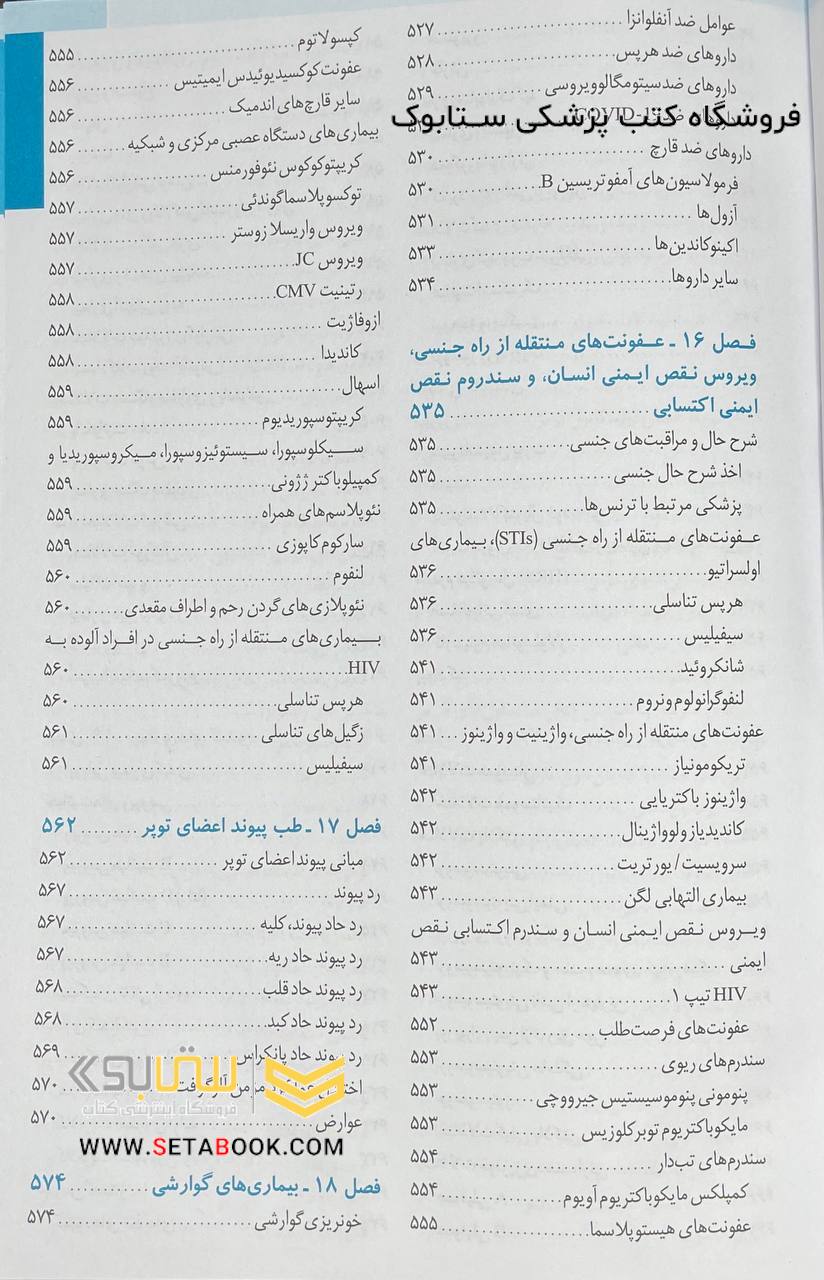 عوامل ضد آنفلوانزا ........ ۵۲۷
داروهای ضد هرپس ........ ۵۲۸
داروهای ضدسیتومگالوویروسی ........ ۵۲۹
COVID-1
فروشگاه کتب پزشکی ستابوک
داروهای ضد قارچ ........ ۵۳۰
فرمولاسیون‌های آمفوتریسین B ........ ۵۳۰
آزول‌ها ........ ۵۳۱
اکینوکاندین‌ها ........ ۵۳۳
سایر داروها ........ ۵۳۴
فصل ۱۶ ـ عفونت‌های منتقله از راه جنسی،
ویروس نقص ایمنی انسان، و سندروم نقص
ایمنی اکتسابی ........ ۵۳۵
شرح حال و مراقبت‌های جنسی ........ ۵۳۵
اخذ شرح حال جنسی ........ ۵۳۵
پزشکی مرتبط با ترنس‌ها ........ ۵۳۵
عفونت‌های منتقله از راه جنسی (STIs)، بیماری‌های
اولسراتیو ........ ۵۳۶
هرپس تناسلی ........ ۵۳۶
سیفیلیس ........ ۵۳۶
شانکروئید ........ ۵۴۱
لنفوگرانولوم ونروم ........ ۵۴۱
عفونت‌های منتقله از راه جنسی، واژینیت و واژینوز ... ۵۴۱
تریکومونیاز ........ ۵۴۱
واژینوز باکتریایی ........ ۵۴۲
کاندیدیاز ولوواژینال ........ ۵۴۲
سرویسیت/ یورتریت ........ ۵۴۲
بیماری التهابی لگن ........ ۵۴۳
ویروس نقص ایمنی انسان و سندرم اکتسابی نقص
ایمنی ........ ۵۴۳
HIV تیپ ۱ ........ ۵۴۳
عفونت‌های فرصت‌طلب ........ ۵۵۲
سندرم‌های ریوی ........ ۵۵۳
پنومونی پنوموسیستیس جیرووچی ........ ۵۵۳
مایکوباکتریوم توبرکلوزیس ........ ۵۵۳
سندرم‌های تب‌دار ........ ۵۵۴
کمپلکس مایکوباکتریوم آویوم ........ ۵۵۴
عفونت‌های هیستوپلاسما ........ ۵۵۵
کپسولاتوم ........ ۵۵۵
عفونت کوکسیدیوئیدس ایمیتیس ........ ۵۵۶
سایر قارچ‌های اندمیک ........ ۵۵۶
بیماری‌های دستگاه عصبی مرکزی و شبکیه ........ ۵۵۶
کریپتوکوکوس نئوفورمنس ........ ۵۵۶
توکسوپلاسماگوندئی ........ ۵۵۷
ویروس واریسلا زوستر ........ ۵۵۷
ویروس JC ........ ۵۵۷
رتینیت CMV ........ ۵۵۸
ازوفاژیت ........ ۵۵۸
کاندیدا ........ ۵۵۸
اسهال ........ ۵۵۹
کریپتوسپوریدیوم ........ ۵۵۹
سیکلوسپورا، سیستوئیزوسپورا، میکروسپوریدیا و
کمپیلوباکتر ژژونی ........ ۵۵۹
نئوپلاسم‌های همراه ........ ۵۵۹
سارکوم کاپوزی ........ ۵۵۹
لنفوم ........ ۵۶۰
نئوپلازی‌های گردن رحم و اطراف مقعدی ........ ۵۶۰
بیماری‌های منتقله از راه جنسی در افراد آلوده به
HIV ........ ۵۶۰
هرپس تناسلی ........ ۵۶۰
زگیل‌های تناسلی ........ ۵۶۱
سیفیلیس ........ ۵۶۱
فصل ۱۷ ـ طب پیوند اعضای توپر ........ ۵۶۲
مبانی پیوند اعضای توپر ........ ۵۶۲
رد پیوند ........ ۵۶۷
رد حاد پیوند، کلیه ........ ۵۶۷
رد پیوند حاد ریه ........ ۵۶۷
رد پیوند حاد قلب ........ ۵۶۸
رد پیوند حاد کبد ........ ۵۶۸
رد پیوند حاد پانکراس ........ ۵۶۹
مزمن آلوگرفت ........ ۵۷۰
عوارض ........ ۵۷۰
ستابوک
فروشگاه اینترنتی کتاب
WWW.SETABOOK.COM
فصل ۱۸ ـ بیماری‌های گوارشی ........ ۵۷۴
خونریزی گوارشی ........ ۵۷۴